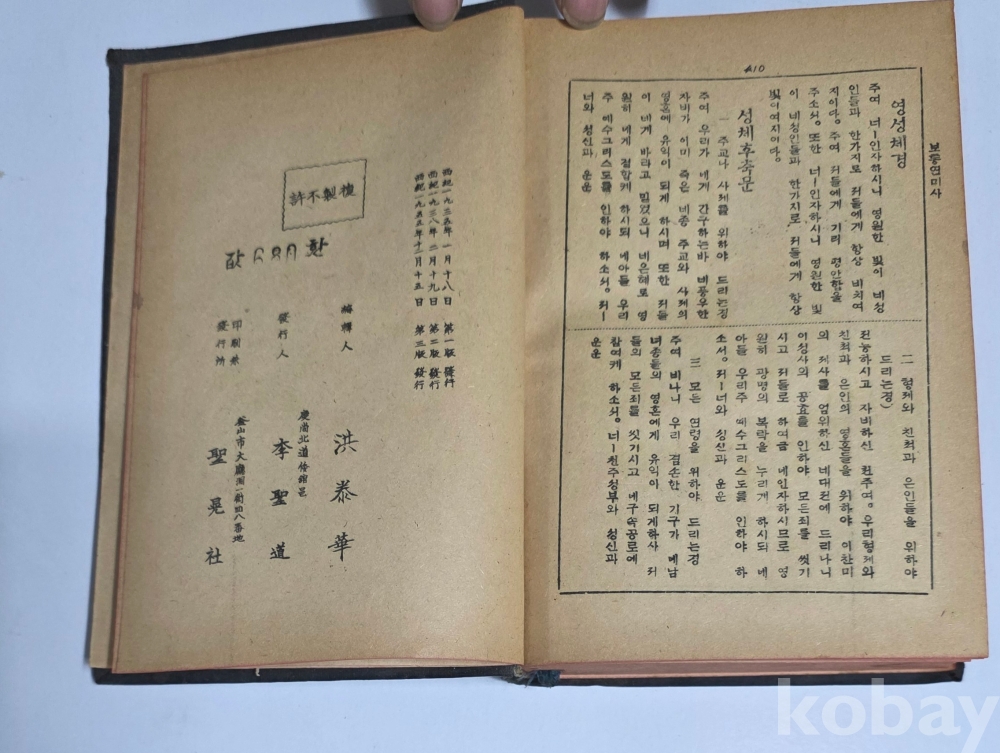 410
보통연미사
영성체경
주여 너ー인자하시니 영원한 빛이 네성
인들과 한가지로 저들에게 항상 비치여
지이다. 주여 저들에게 기리 평안함을
주소서. 또한 너ー인자하시니 영원한 빛
이 네성인들과 한가지로 저들에게 항상
빛이여지이다.
성체후축문
一 주교나 사제를 위하야 드리는경
주여 우리가 네게 간구하는바 네풍우한
자비가 이미 죽은 네종 주교와 사제의
영혼에 유익이 되게 하시며 또한 저들
이 네게 바라고 믿었으니 네은혜로 영
원히 네게 결합케 하시되 네아들 우리
주 예수그리스도를 인하야 하소서, 저ー
너와 성신과 운운
二 형제와 친척과 은인들을 위하야
드리는경)
전능하시고 자비하신 천주여, 우리형제와
친척과 은인의 영혼들을 위하야 이찬미
의 제사를 엄위하신 네대전에 드리나니
이성사의 공효를 인하야 모든죄를 씻기
시고 저들로 하여금 네인자하시므로 영
원히 광명의 복락을 누리게 하시되 네
아들 우리주 예수그리스도를 인하야 하
소서. 저ー너와 성신과 운운
三 모든 연령을 위하야 드리는경
주여 비나니 우리 겸손한 기구가 네남
녀종들의 영혼에게 유익이 되게하사 저
들의 모든죄를 씻기시고 네구속공로에
참여케 하소서. 너ー천주성부와 성신과
운운
西紀一九三五年 一月十八日 第一版發行
西紀一九三八年 二月十九日 第二版發行
西紀一九五五年十二月十五日 第三版發行
編輯人 洪泰華
慶尙北道倭舘邑
發行人 李聖道
釜山市大廳洞一街四八番地
印刷兼
發行所 聖晃社
許不製複
환
값
kobay